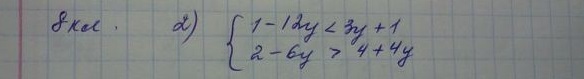 8 кл. 2) { 1 - 12y < 3y + 1
2 - 6y > 4 + 4y